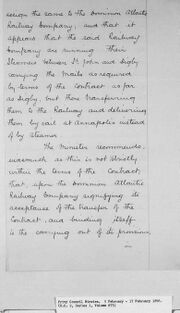 assign the same to the Dominion Atlantic
Railway Company, and that it
appears that the said Railway
Company are running their
Steamers between St. John and Digby
carrying the Mails as required
by terms of the Contract as far
as Digby, but there transferring
them to the Railway and delivering
them by rail at Annapolis instead
of by steamer.
The Minister recommends,
inasmuch as this is not strictly
within the terms of the Contract,
that, upon the Dominion Atlantic
Railway Company signifying its
acceptance of the transfer of the
Contract, and binding itself
to the carrying out of its provisions,
Privy Council Minutes, 5 February - 17 February 1896
(R.G. 2, Series 1, Volume